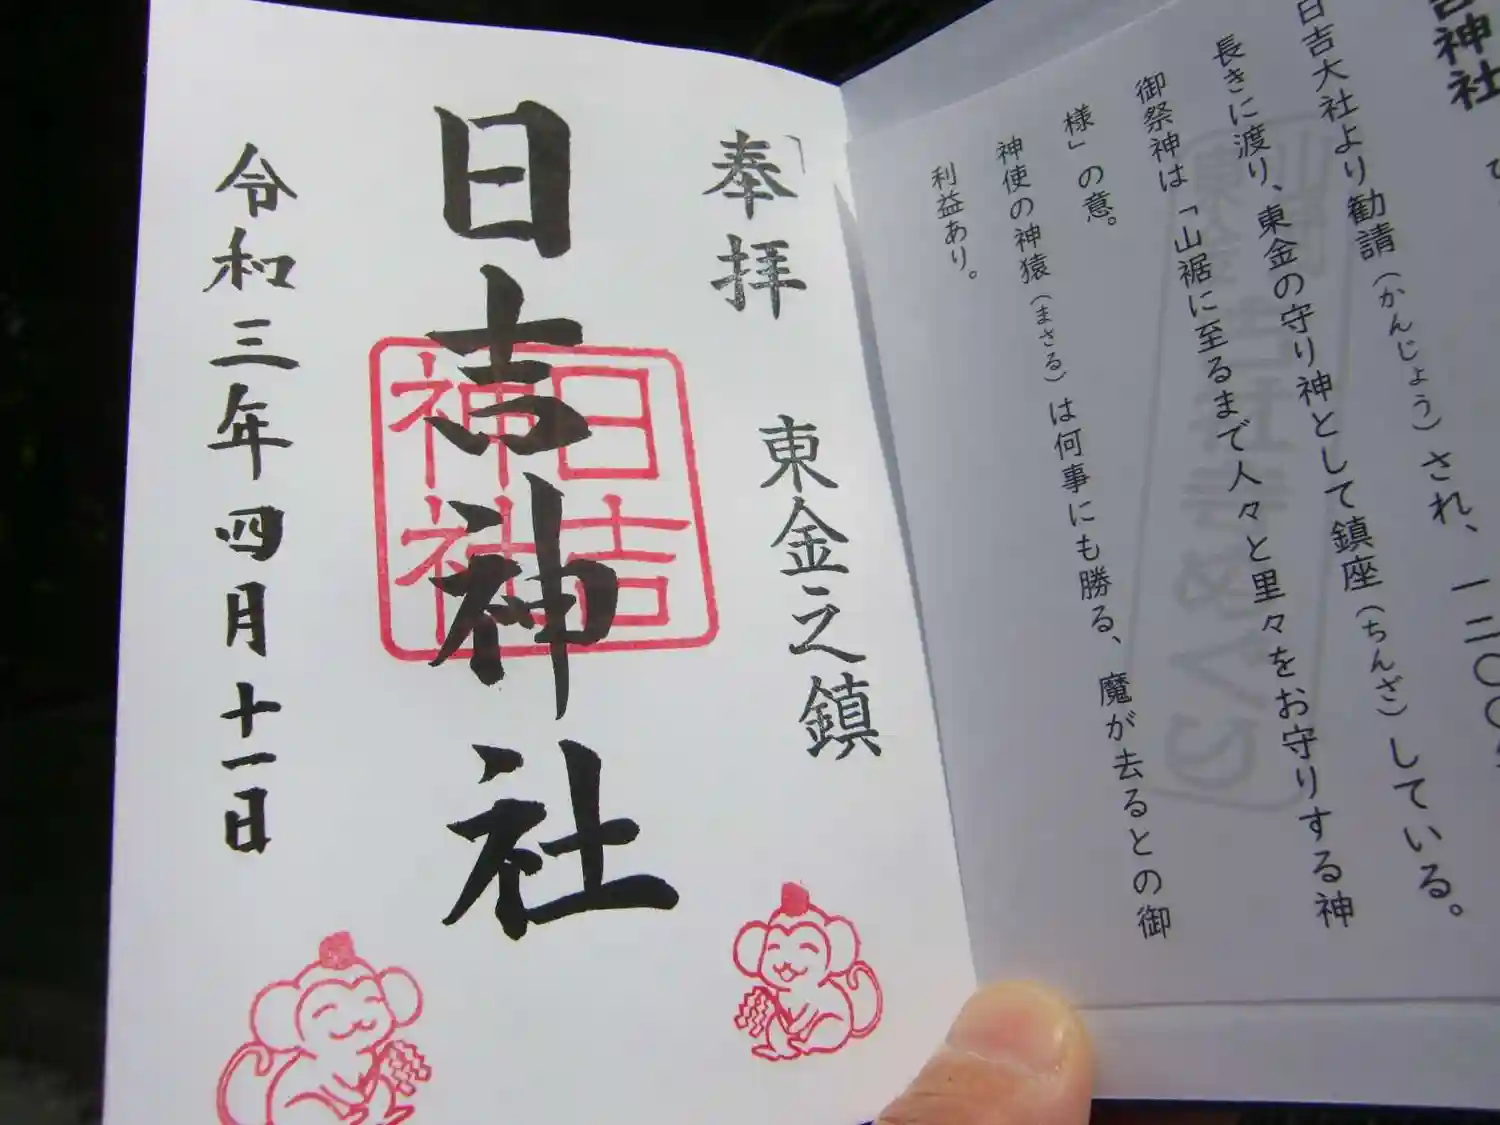 奉拝
東金之鎮
日吉神社
日吉
神社
令和三年四月十一日
吉神社
日吉大社より勧請(かんじょう)され、一二〇〇年
長きに渡り、東金の守り神として鎮座(ちんざ)している。
御祭神は「山裾に至るまで人々と里々をお守りする神
様」の意。
神使の神猿(まさる)は何事にも勝る、魔が去るとの御
利益あり。